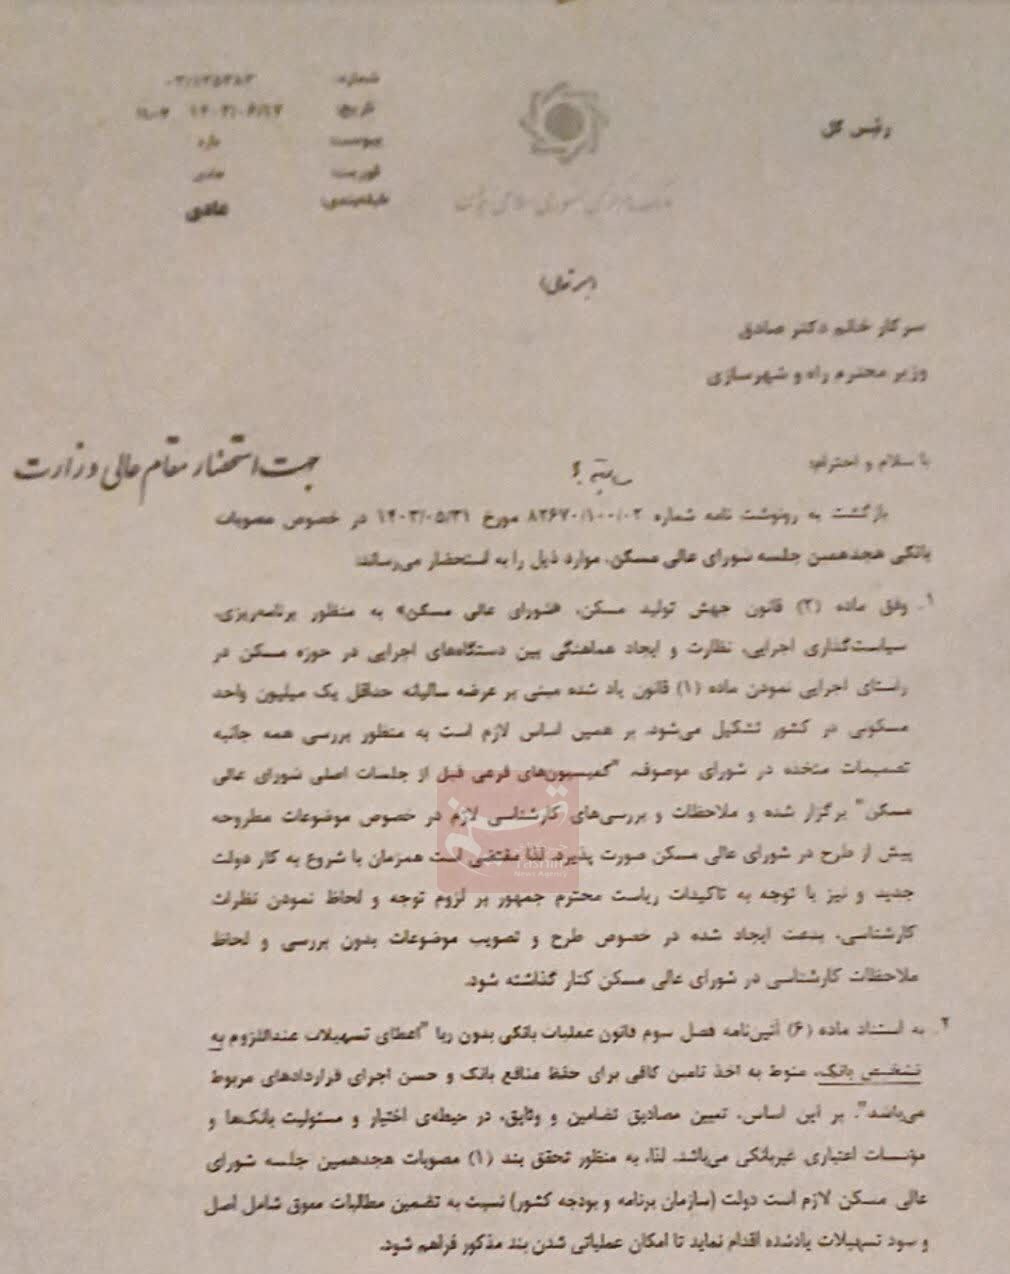 رئیس کل
شماره:
تاریخ:
پیوست: دارد
فوریت: عادی
طبقه‌بندی: عادی
سرکار خانم دکتر صادق
وزیر محترم راه و شهرسازی
با سلام و احترام؛
جهت استحضار مقام عالی وزارت
بازگشت به رونوشت نامه شماره ۸۲۶۷۰/۱۰۰/۰۲ مورخ ۱۴۰۳/۰۵/۳۱ در خصوص مصوبات
بانکی هجدهمین جلسه شورای عالی مسکن، موارد ذیل را به استحضار می‌رساند:
۱. وفق ماده (۲) قانون جهش تولید مسکن، «شورای عالی مسکن» به منظور برنامه‌ریزی،
سیاست‌گذاری اجرایی، نظارت و ایجاد هماهنگی بین دستگاه‌های اجرایی در حوزه مسکن در
راستای اجرایی نمودن ماده (۱) قانون یاد شده مبنی بر عرضه سالیانه حداقل یک میلیون واحد
مسکونی در کشور تشکیل می‌شود. بر همین اساس لازم است به منظور بررسی همه جانبه
تصمیمات متخذه در شورای موصوف، "کمیسیون‌های فرعی قبل از جلسات اصلی شورای عالی
مسکن" برگزار شده و ملاحظات و بررسی‌های کارشناسی لازم در خصوص موضوعات مطروحه
پیش از طرح در شورای عالی مسکن صورت پذیرد. لذا مقتضی است همزمان با شروع به کار دولت
جدید و نیز با توجه به تاکیدات ریاست محترم جمهور بر لزوم توجه و لحاظ نمودن نظرات
کارشناسی، بدعت ایجاد شده در خصوص طرح و تصویب موضوعات بدون بررسی و لحاظ
ملاحظات کارشناسی در شورای عالی مسکن کنار گذاشته شود.
۲. به استناد ماده (۶) آئین‌نامه فصل سوم قانون عملیات بانکی بدون ربا "اعطای تسهیلات عنداللزوم به
تشخیص بانک، منوط به اخذ تامین کافی برای حفظ منافع بانک و حسن اجرای قراردادهای مربوط
می‌باشد". بر این اساس، تعیین مصادیق تضامین و وثایق، در حیطه‌ی اختیار و مسئولیت بانک‌ها و
مؤسسات اعتباری غیربانکی می‌باشد. لذا، به منظور تحقق بند (۱) مصوبات هجدهمین جلسه شورای
عالی مسکن لازم است دولت (سازمان برنامه و بودجه کشور) نسبت به تضمین مطالبات معوق شامل اصل
و سود تسهیلات یادشده اقدام نماید تا امکان عملیاتی شدن بند مذکور فراهم شود.